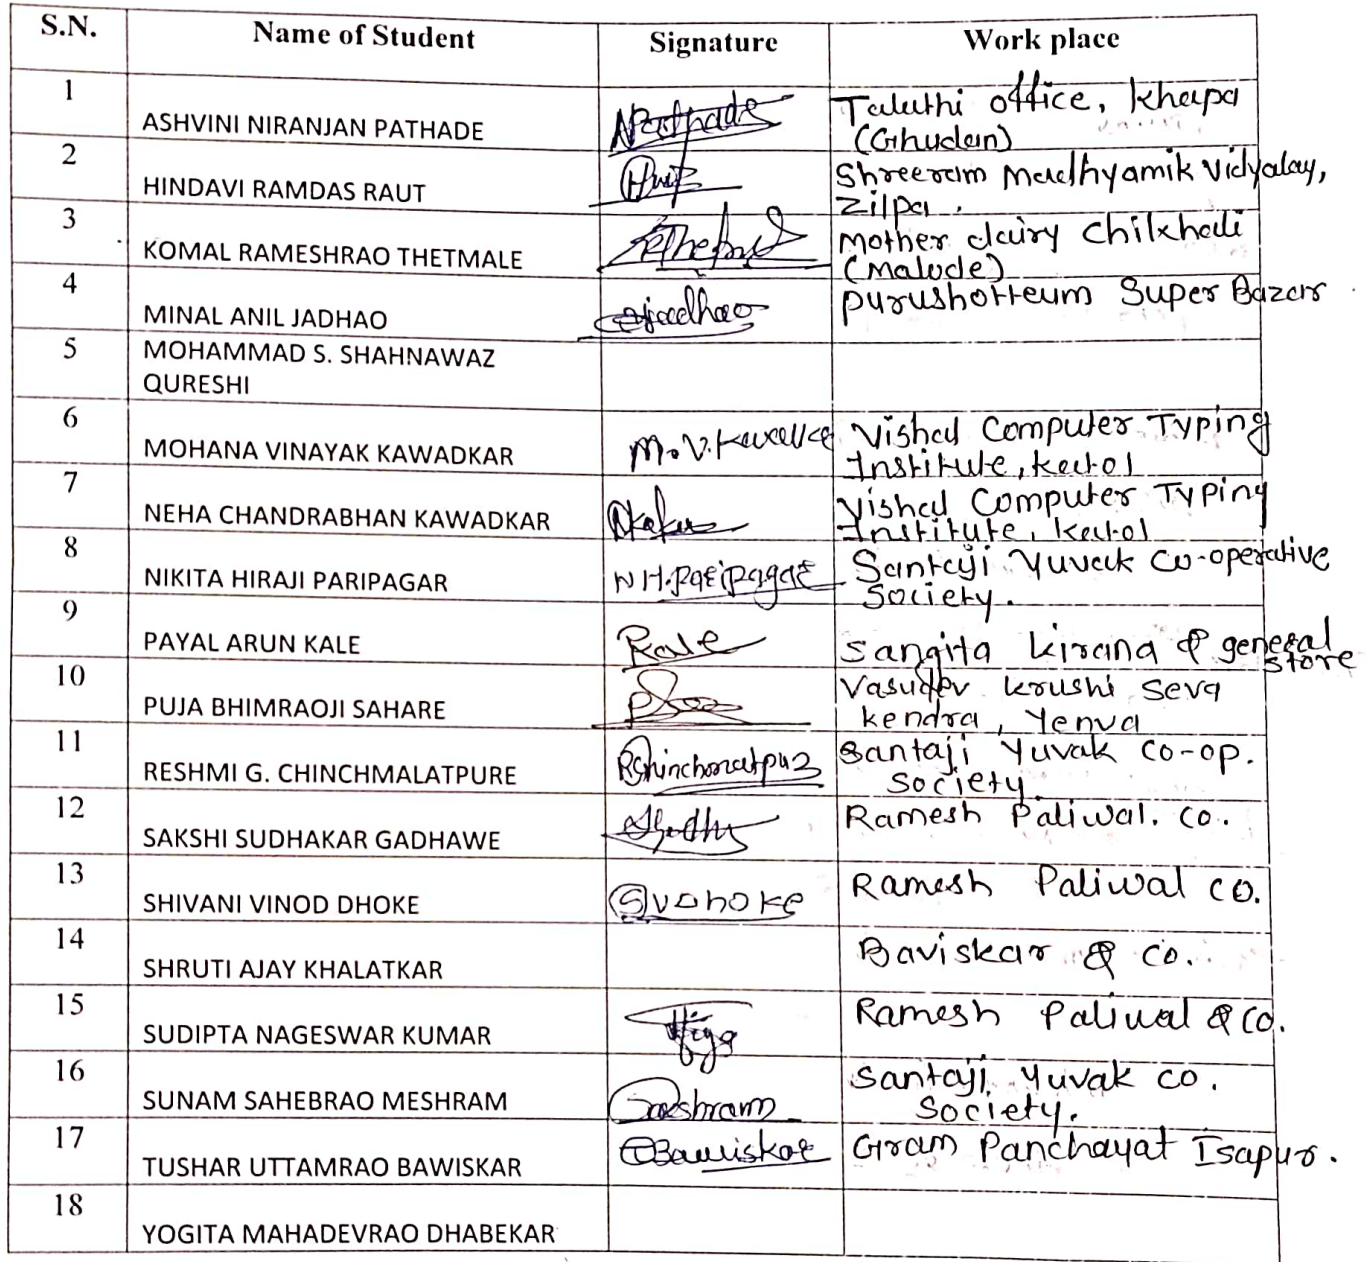 S.N. Name of Student Signature Work place
1 ASHVINI NIRANJAN PATHADE Talathi office, Khapa
(Ghudan)
2 HINDAVI RAMDAS RAUT Shreeram Madhyamik Vidyalay,
Zilpa.
3 KOMAL RAMESHRAO THETMALE Mother dairy Chikhali
(Malode)
4 MINAL ANIL JADHAO Jadhao Purushottam Super Bazar
5 MOHAMMAD S. SHAHNAWAZ
QURESHI
6 MOHANA VINAYAK KAWADKAR M.V. Vishal Computer Typing
Institute, Katol
7 NEHA CHANDRABHAN KAWADKAR Vishal Computer Typing
Institute, Katol
8 NIKITA HIRAJI PARIPAGAR N H.Paripagar Santaji Yuvak Co-operative
Society.
9 PAYAL ARUN KALE Kale Sangita kirana & general
store
10 PUJA BHIMRAOJI SAHARE Vasudev krushi seva
kendra, Yenva
11 RESHMI G. CHINCHMALATPURE Santaji Yuvak Co-op.
Society.
12 SAKSHI SUDHAKAR GADHAWE Ramesh Paliwal. Co.
13 SHIVANI VINOD DHOKE SVDHOKE Ramesh Paliwal Co.
14 SHRUTI AJAY KHALATKAR Baviskar & Co.
15 SUDIPTA NAGESWAR KUMAR Ramesh Paliwal & Co.
16 SUNAM SAHEBRAO MESHRAM Santaji Yuvak Co.
Society.
17 TUSHAR UTTAMRAO BAWISKAR Bawiskar Gram Panchayat Isapur.
18 YOGITA MAHADEVRAO DHABEKAR